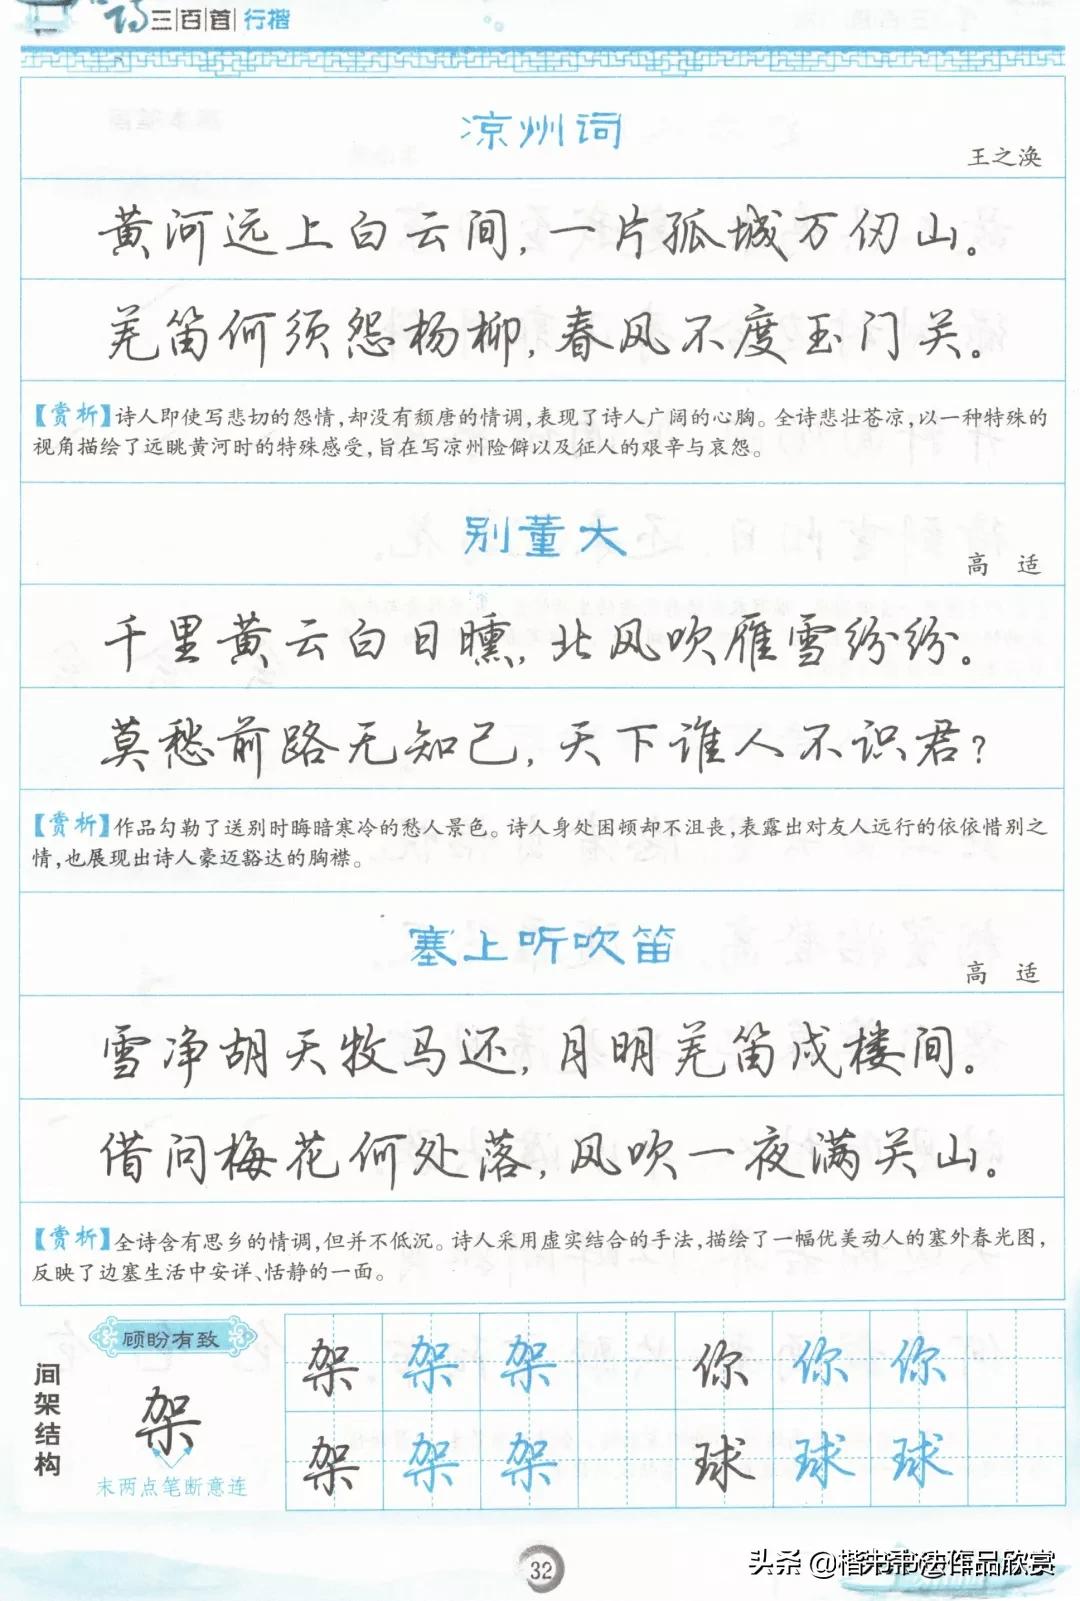 诗三百首 行楷
凉州词
王之涣
黄河远上白云间，一片孤城万仞山。
羌笛何须怨杨柳，春风不度玉门关。
【赏析】诗人即使写悲切的怨情，却没有颓唐的情调，表现了诗人广阔的心胸。全诗悲壮苍凉，以一种特殊的
视角描绘了远眺黄河时的特殊感受，旨在写凉州险僻以及征人的艰辛与哀怨。
别董大
高 适
千里黄云白日曛，北风吹雁雪纷纷。
莫愁前路无知己，天下谁人不识君？
【赏析】作品勾勒了送别时晦暗寒冷的愁人景色。诗人身处困顿却不沮丧，表露出对友人远行的依依惜别之
情，也展现出诗人豪迈豁达的胸襟。
塞上听吹笛
高 适
雪净胡天牧马还，月明羌笛戍楼间。
借问梅花何处落，风吹一夜满关山。
【赏析】全诗含有思乡的情调，但并不低沉。诗人采用虚实结合的手法，描绘了一幅优美动人的塞外春光图，
反映了边塞生活中安详、恬静的一面。
间架结构
顾盼有致
架
末两点笔断意连
架 架 架 你 你 你
架 架 架 球 球 球
32
头条 @楷书书法作品欣赏